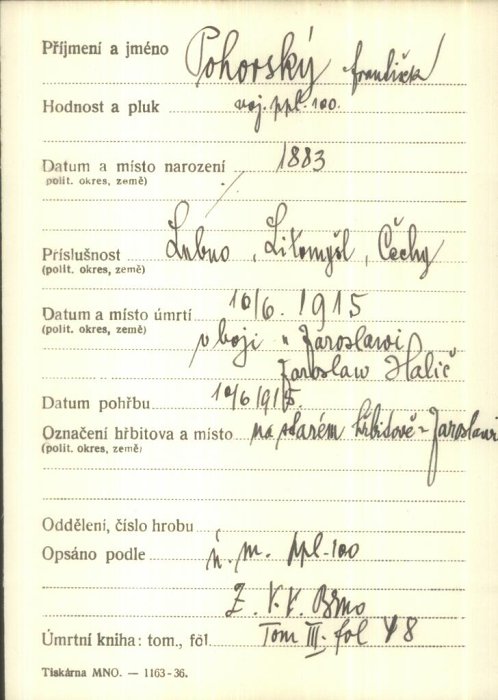 Příjmení a jméno Pohorský František
Hodnost a pluk voj. ppl. 100.
Datum a místo narození 1883
(polit. okres, země)
Příslušnost Lubno, Litomyšl, Čechy
(polit. okres, země)
Datum a místo úmrtí 10/6. 1915
(polit. okres, země) v boji u Jaroslawi
Jaroslaw Halič
Datum pohřbu 10/6 1915.
Označení hřbitova a místo na starém hřbitově v Jaroslawi
(polit. okres, země)
Oddělení, číslo hrobu
Opsáno podle ú. m. ppl-100
Z. V. V. Brno
Úmrtní kniha: tom., fol. Tom III. fol 48
Tiskárna MNO. — 1163-36.